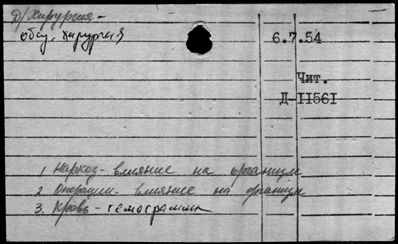 д/Хирургия-
общ. хирургия
6.7.54
Чит.
Д-II56I
1 Наркоз- влияние на организм
2 Операции- влияние на организм
3. Кровь- гемограммы